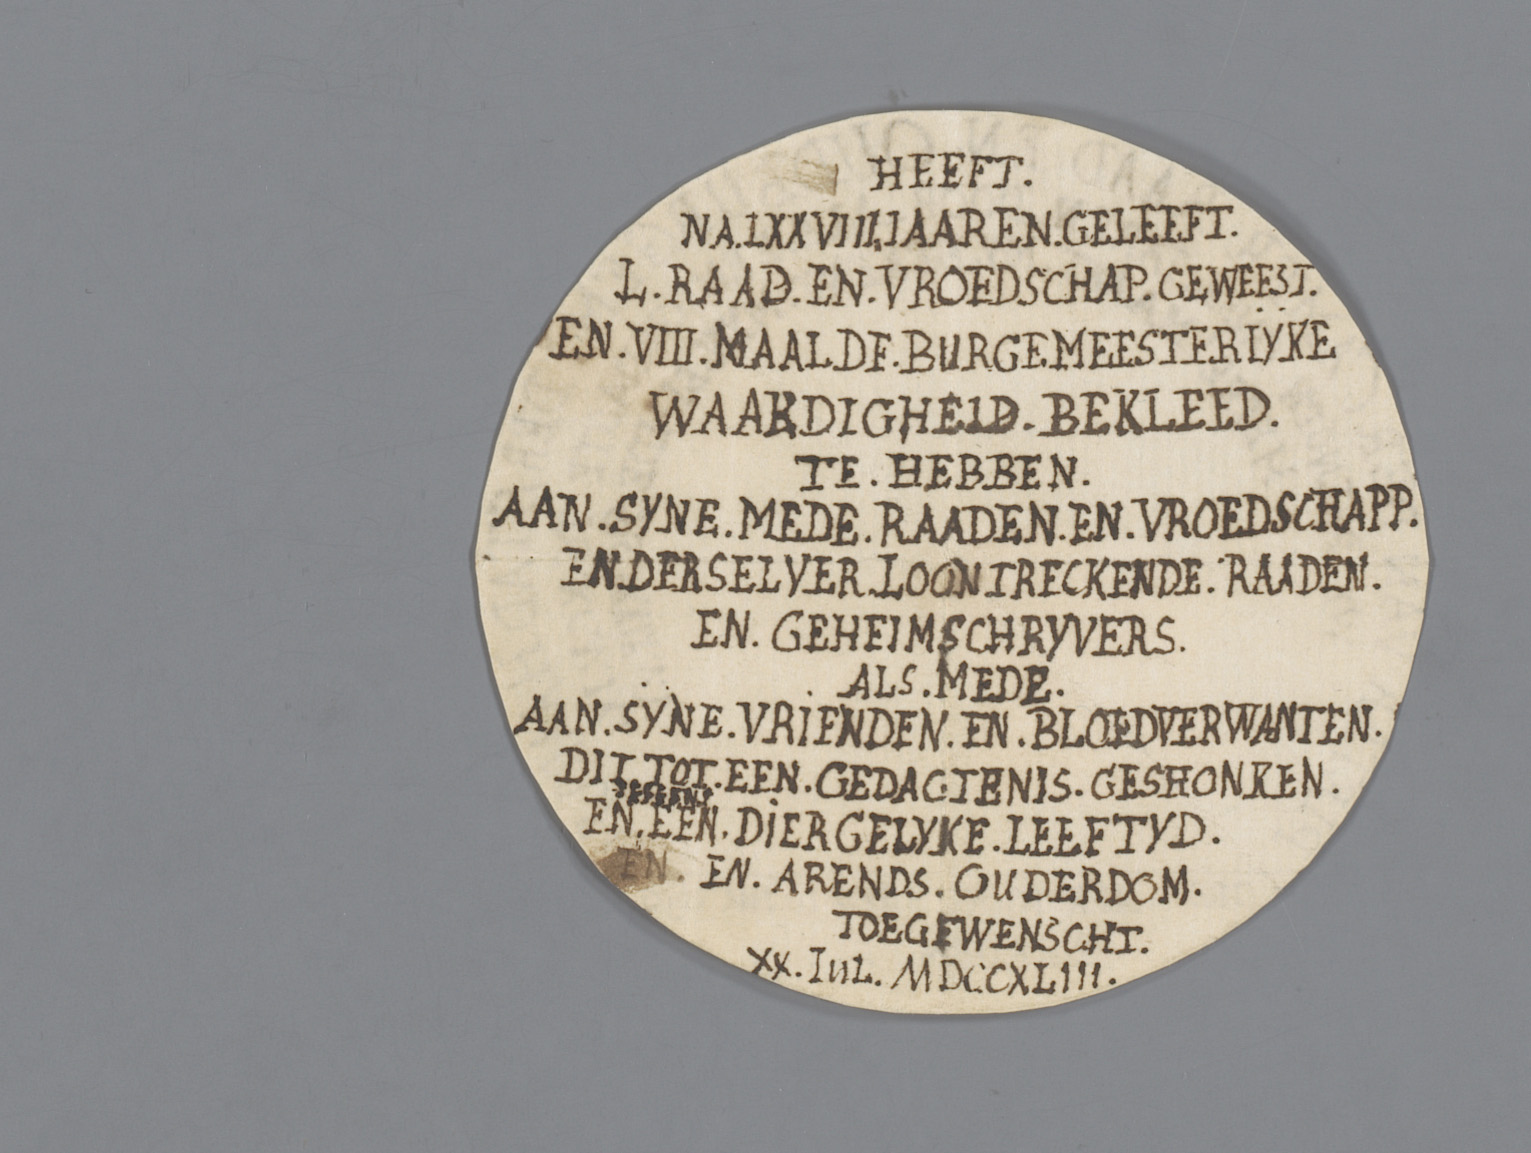 HEEFT.
NA.LXXVIII.IAAREN.GELEEFT.
L.RAAD.EN.VROEDSCHAP.GEWEEST.
EN.VIII.MAAL DE.BURGEMEESTERLYKE
WAARDIGHEID.BEKLEED.
TE.HEBBEN.
AAN.SYNE.MEDE.RAADEN.EN.VROEDSCHAPP.
EN.DERSELVER.LOONTRECKENDE.RAADEN.
EN.GEHEIMSCHRYVERS.
ALS.MEDE.
AAN.SYNE.VRIENDEN.EN.BLOEDVERWANTEN.
DIT.TOT.EEN.GEDACTENIS.GESHONKEN.
EN.EEN.DIERGELYKE.LEEFTYD.
EN. EN.ARENDS.OUDERDOM.
TOEGEWENSCHT.
XX.IUL.MDCCXLIII.